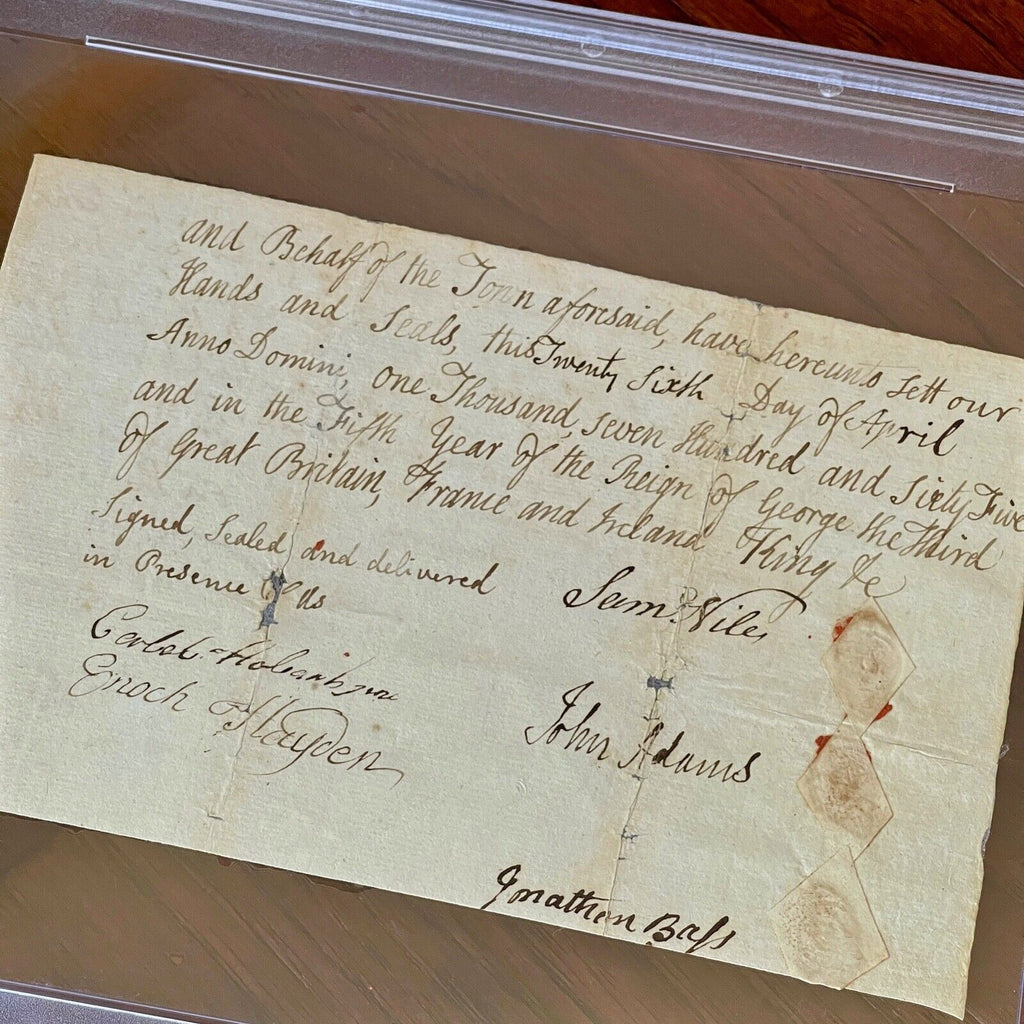 and Behalf of the Town aforesaid, have hereunto Sett our
Hands and Seals, this Twenty Sixth Day of April
Anno Domini, one Thousand, seven Hundred and Sixty Five
and in the Fifth Year of the Reign of George the Third
of Great Britain, France and Ireland King &c
Signed, Sealed and delivered
in Presence of us
Sam. Niles
Hobart
Enoch Hayden
John Adams
Jonathan Bass